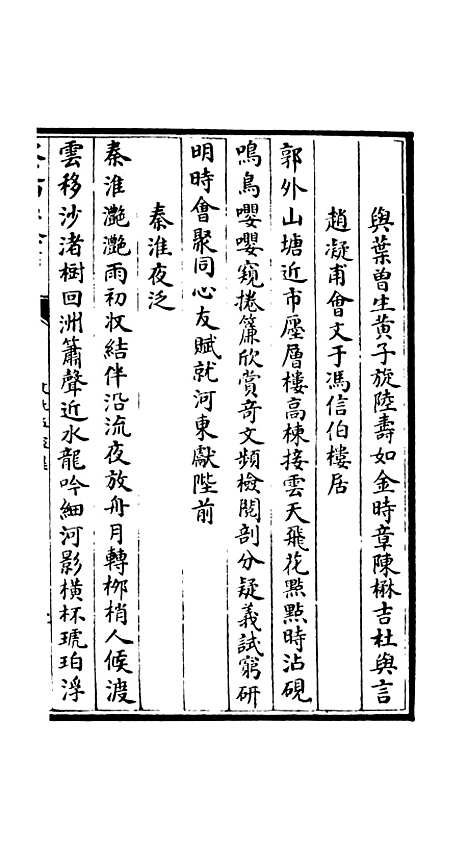 與葉曽生黄子旋陸壽如金時章陳楙吉杜與言
趙凝甫會文于馮信伯樓居
郭外山塘近市㕓層樓高棟接雲天飛花㸃㸃時沾硯
鳴鳥嚶嚶窺捲簾欣賞竒文頻檢閱剖分疑義試窮研
明時會聚同心友賦就河東獻陛前
秦淮夜泛
秦淮灔灔雨初收結伴沿流夜放舟月轉桞梢人候渡
雲移沙渚樹回洲簫聲近水龍吟細河影横杯琥珀浮